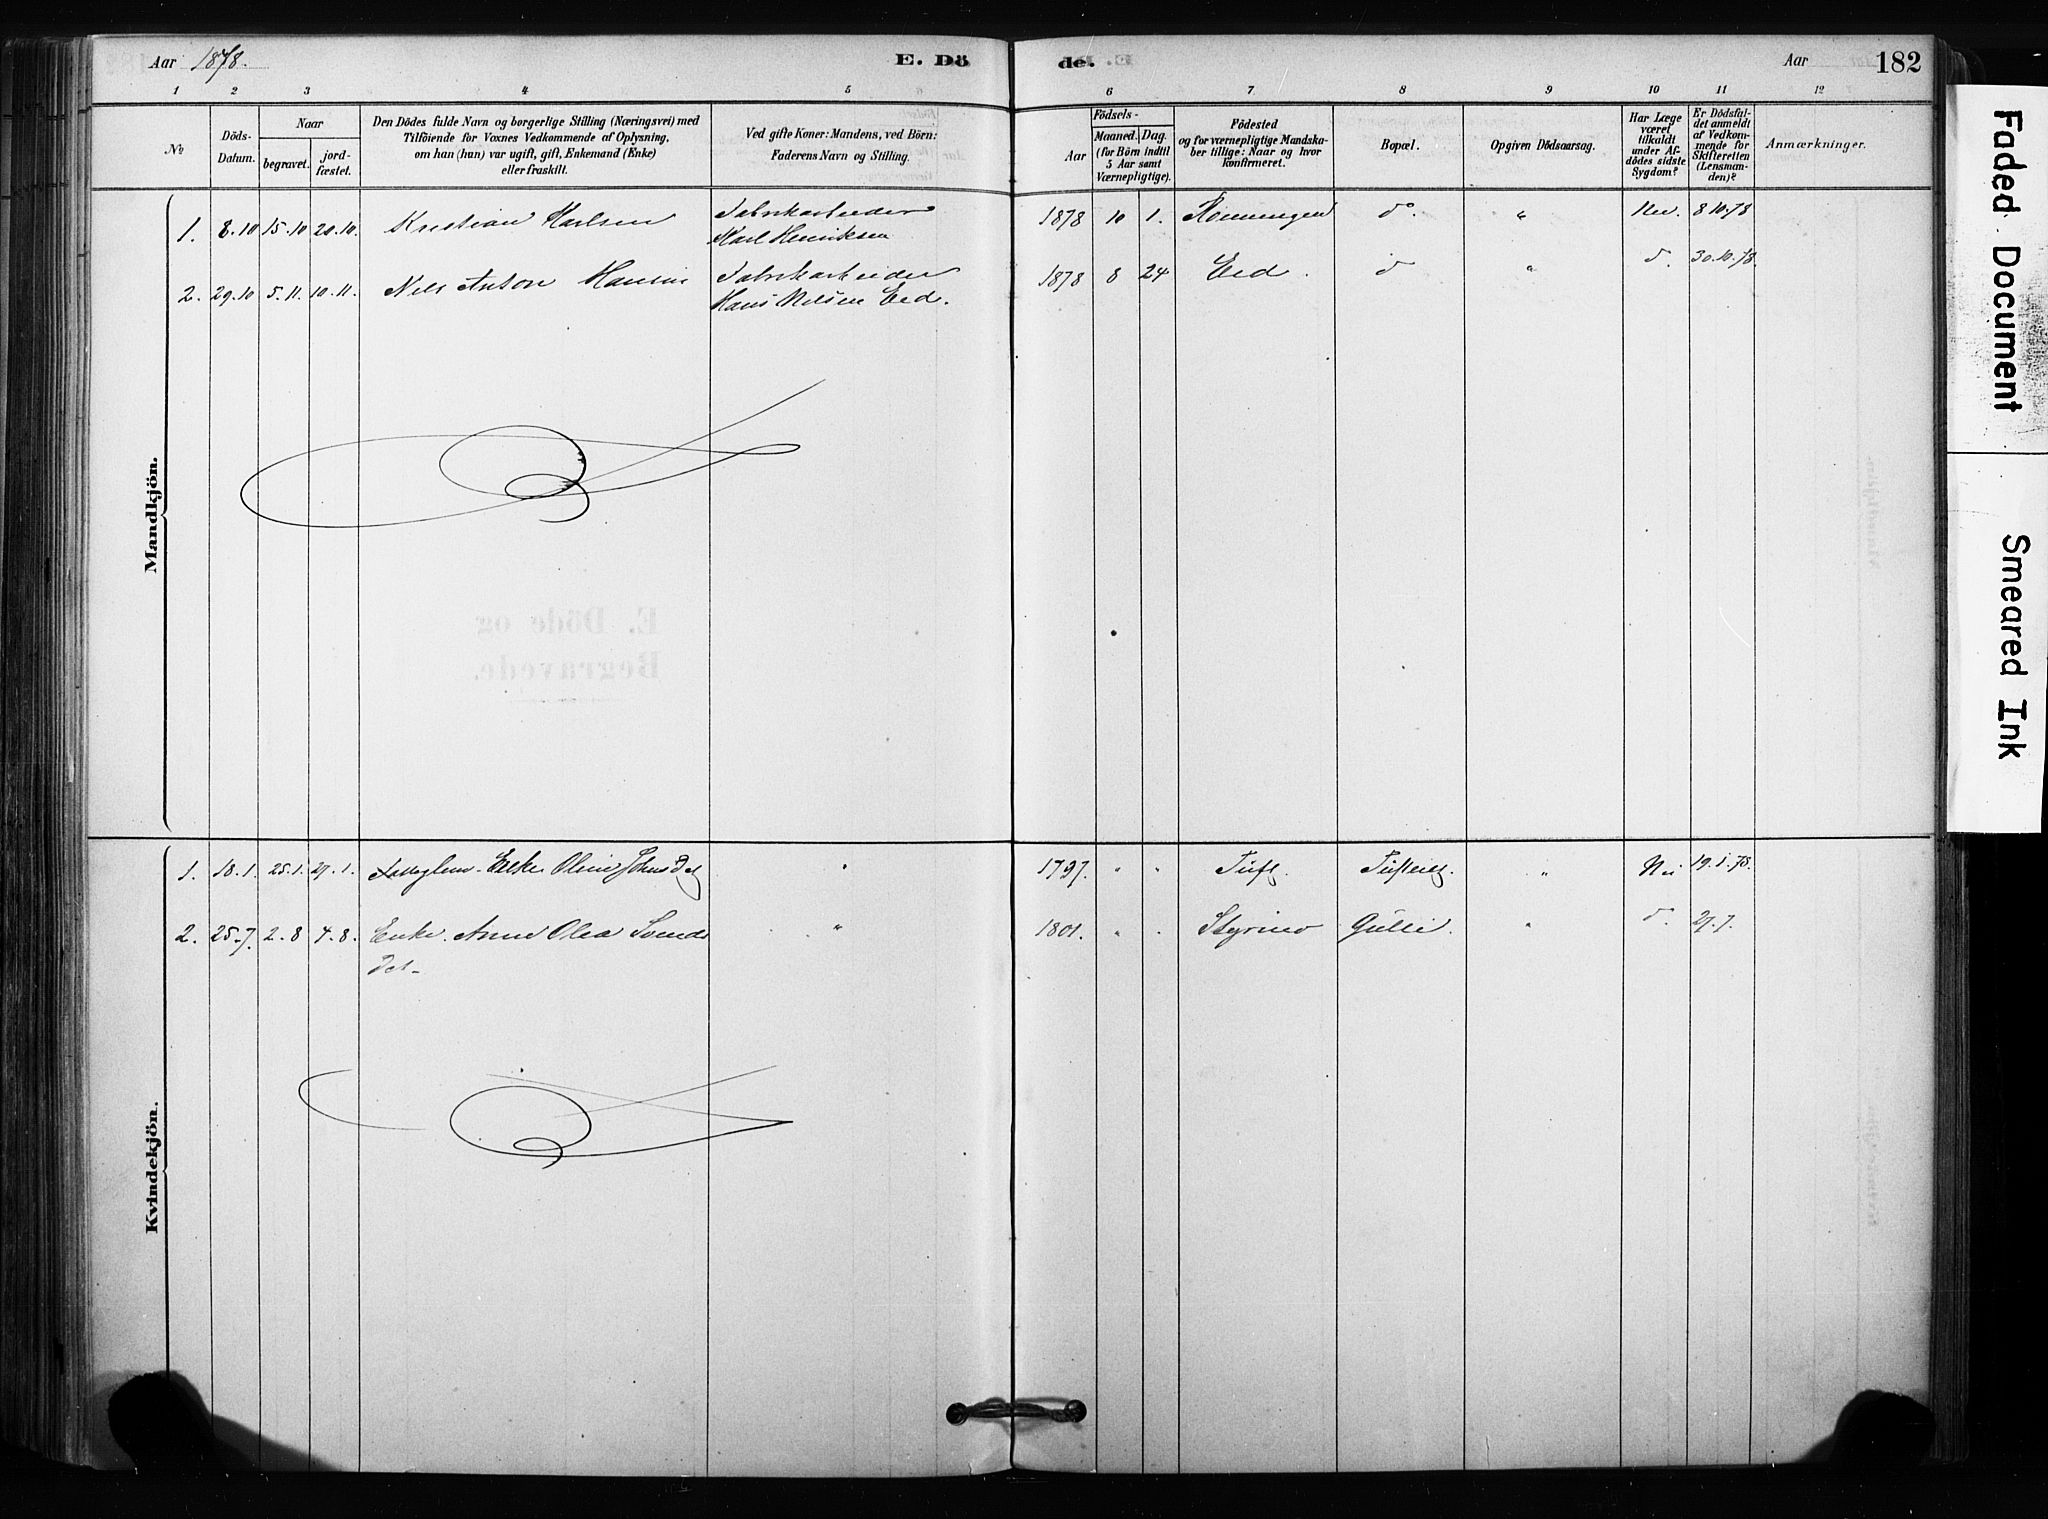 Aar 1878.
E. Dö
de.
Aar
182
1 2 3 4 5 6 7 8 9 10 11 12
No
Döds-
Datum.
Naar
begravet.
jord-
fæstet.
Den Dödes fulde Navn og borgerlige Stilling (Næringsvei) med
Tilföiende for Voxnes Vedkommende af Oplysning,
om han (hun) var ugift, gift, Enkemand (Enke)
eller fraskilt.
Ved gifte Koner: Mandens, ved Börn:
Faderens Navn og Stilling.
Födsels-
Aar
Maaned.
Dag.
(for Börn indtil
5 Aar samt
Værnepligtige).
Födested
og for værnepligtige Mandska-
ber tillige: Naar og hvor
konfirmeret.
Bopæl.
Opgiven Dödsaarsag.
Har Læge
været
tilkaldt
under Af-
dödes sidste
Sygdom?
Er Dödsfal-
det anmeldt
af Vedkom-
mende for
Skifteretten
(Lensman-
den)?
Anmærkninger.
Mandkjön.
1. 8.10 15.10 20.10. Kristian Karlsen Fabrikarbeider 1878 10 1. Rönningen do. " Nei. 8 10.78
Karl Henriksen
2. 29.10 5.11. 10.11. Nils Anton Hansen Fabrikarbeider 1878 8 24 Eed. d " d. 30.10.78.
Hans Nilsen Eed.
E. Döde og
Begravede.
Kvindekjön.
1. 18.1. 25.1. 27.1. Enke Oline Johnsdat " 1797. " " Tuft. " Nei 19.1.78.
2. 25.7. 2.8 4.8. Enke. Anne Olea Svends " 1801. " " Gulli. " d. 27.7.
dat.
Faded Document
Smeared Ink